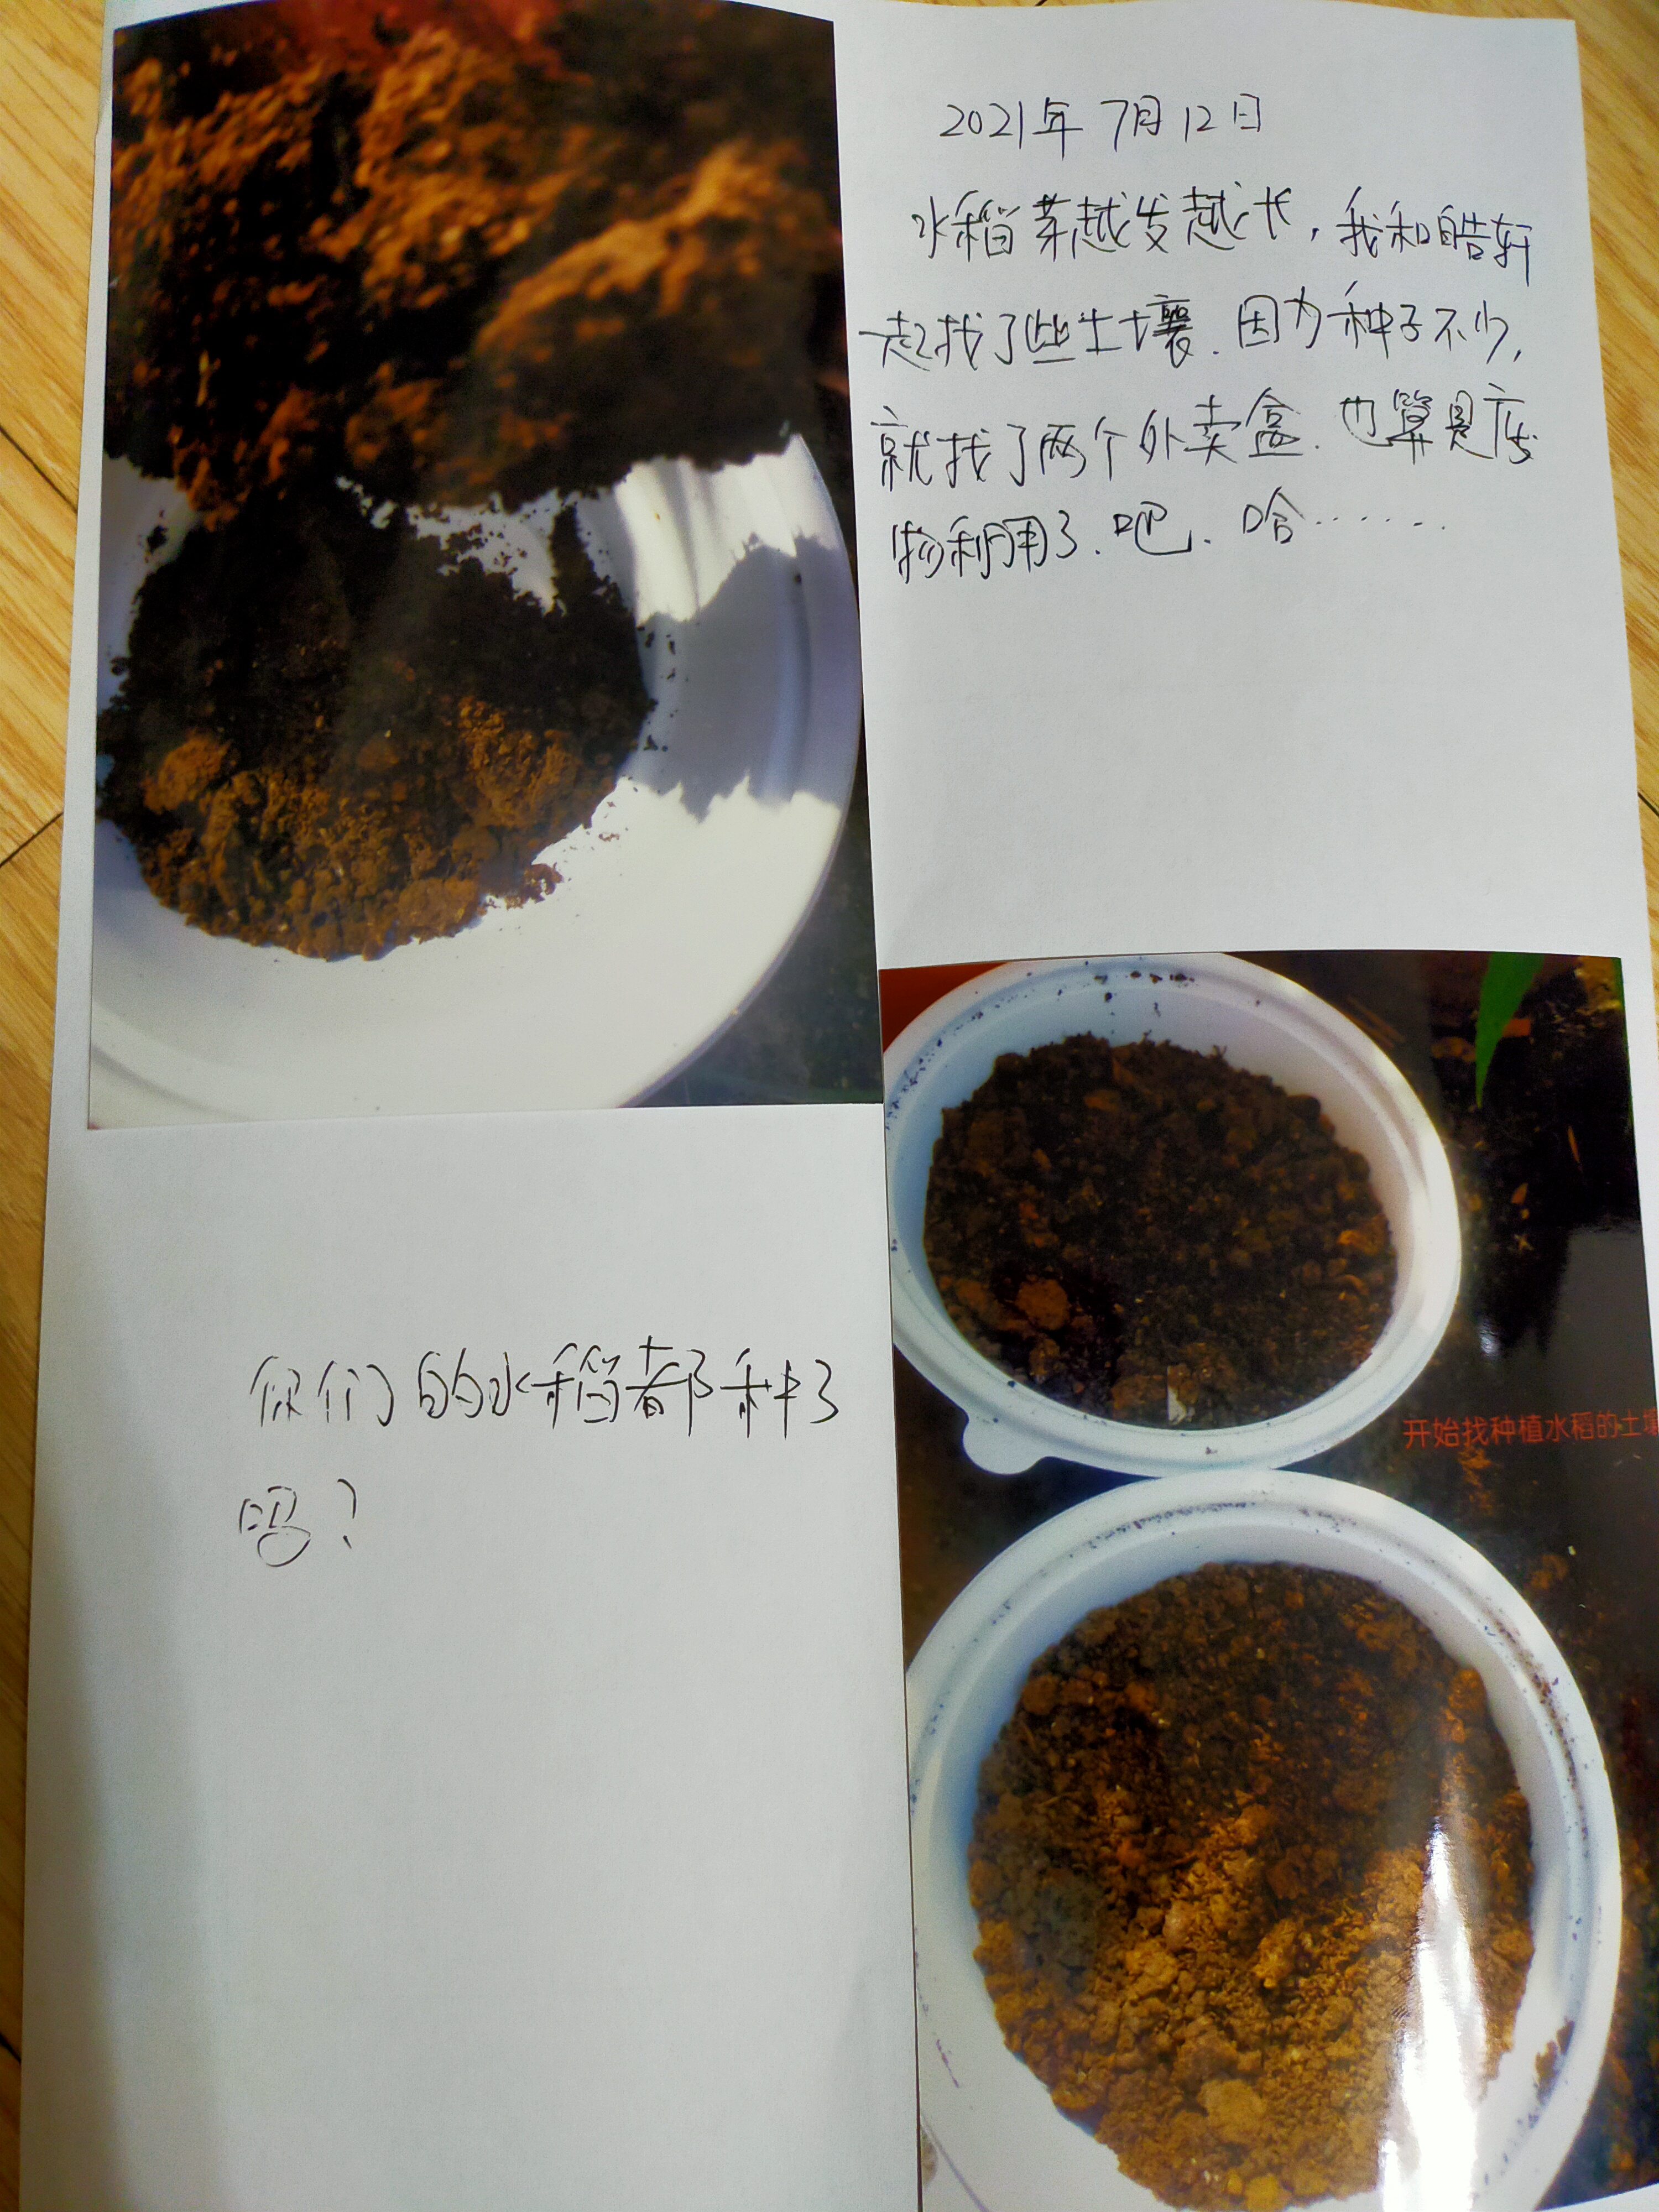 2021年7月12日
水稻芽越发越长,我和皓轩
一起找了些土壤.因为种子不少,
就找了两个外卖盒.也算是废
物利用了.吧.哈……
开始找种植水稻的土壤
你们的水稻都种了
吗?